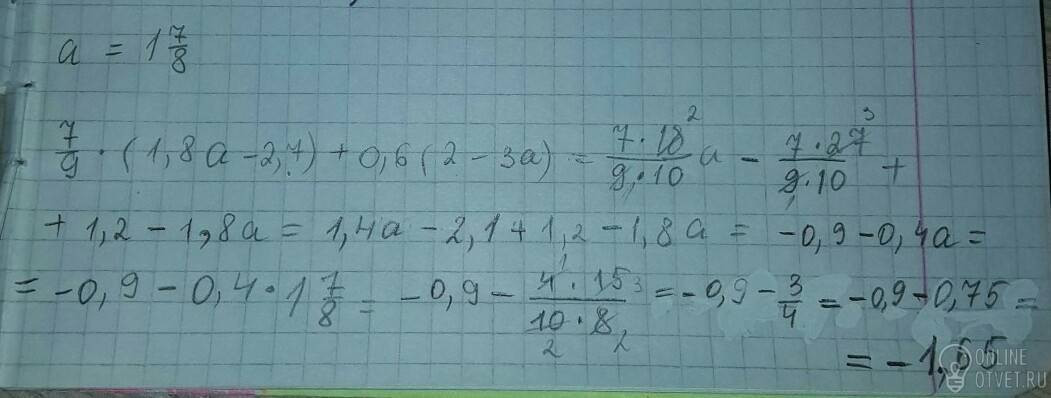 a = 1 7/8
7/9 · (1,8a − 2,7) + 0,6(2 − 3a) = 7·18²/9·10 a − 7·27³/9·10 +
+ 1,2 − 1,8a = 1,4a − 2,1 + 1,2 − 1,8a = −0,9 − 0,4a =
= −0,9 − 0,4 · 1 7/8 = −0,9 − 4¹·15³/10₂·8₂ = −0,9 − 3/4 = −0,9 − 0,75 =
= −1,65
ONLINE
OTVET.RU